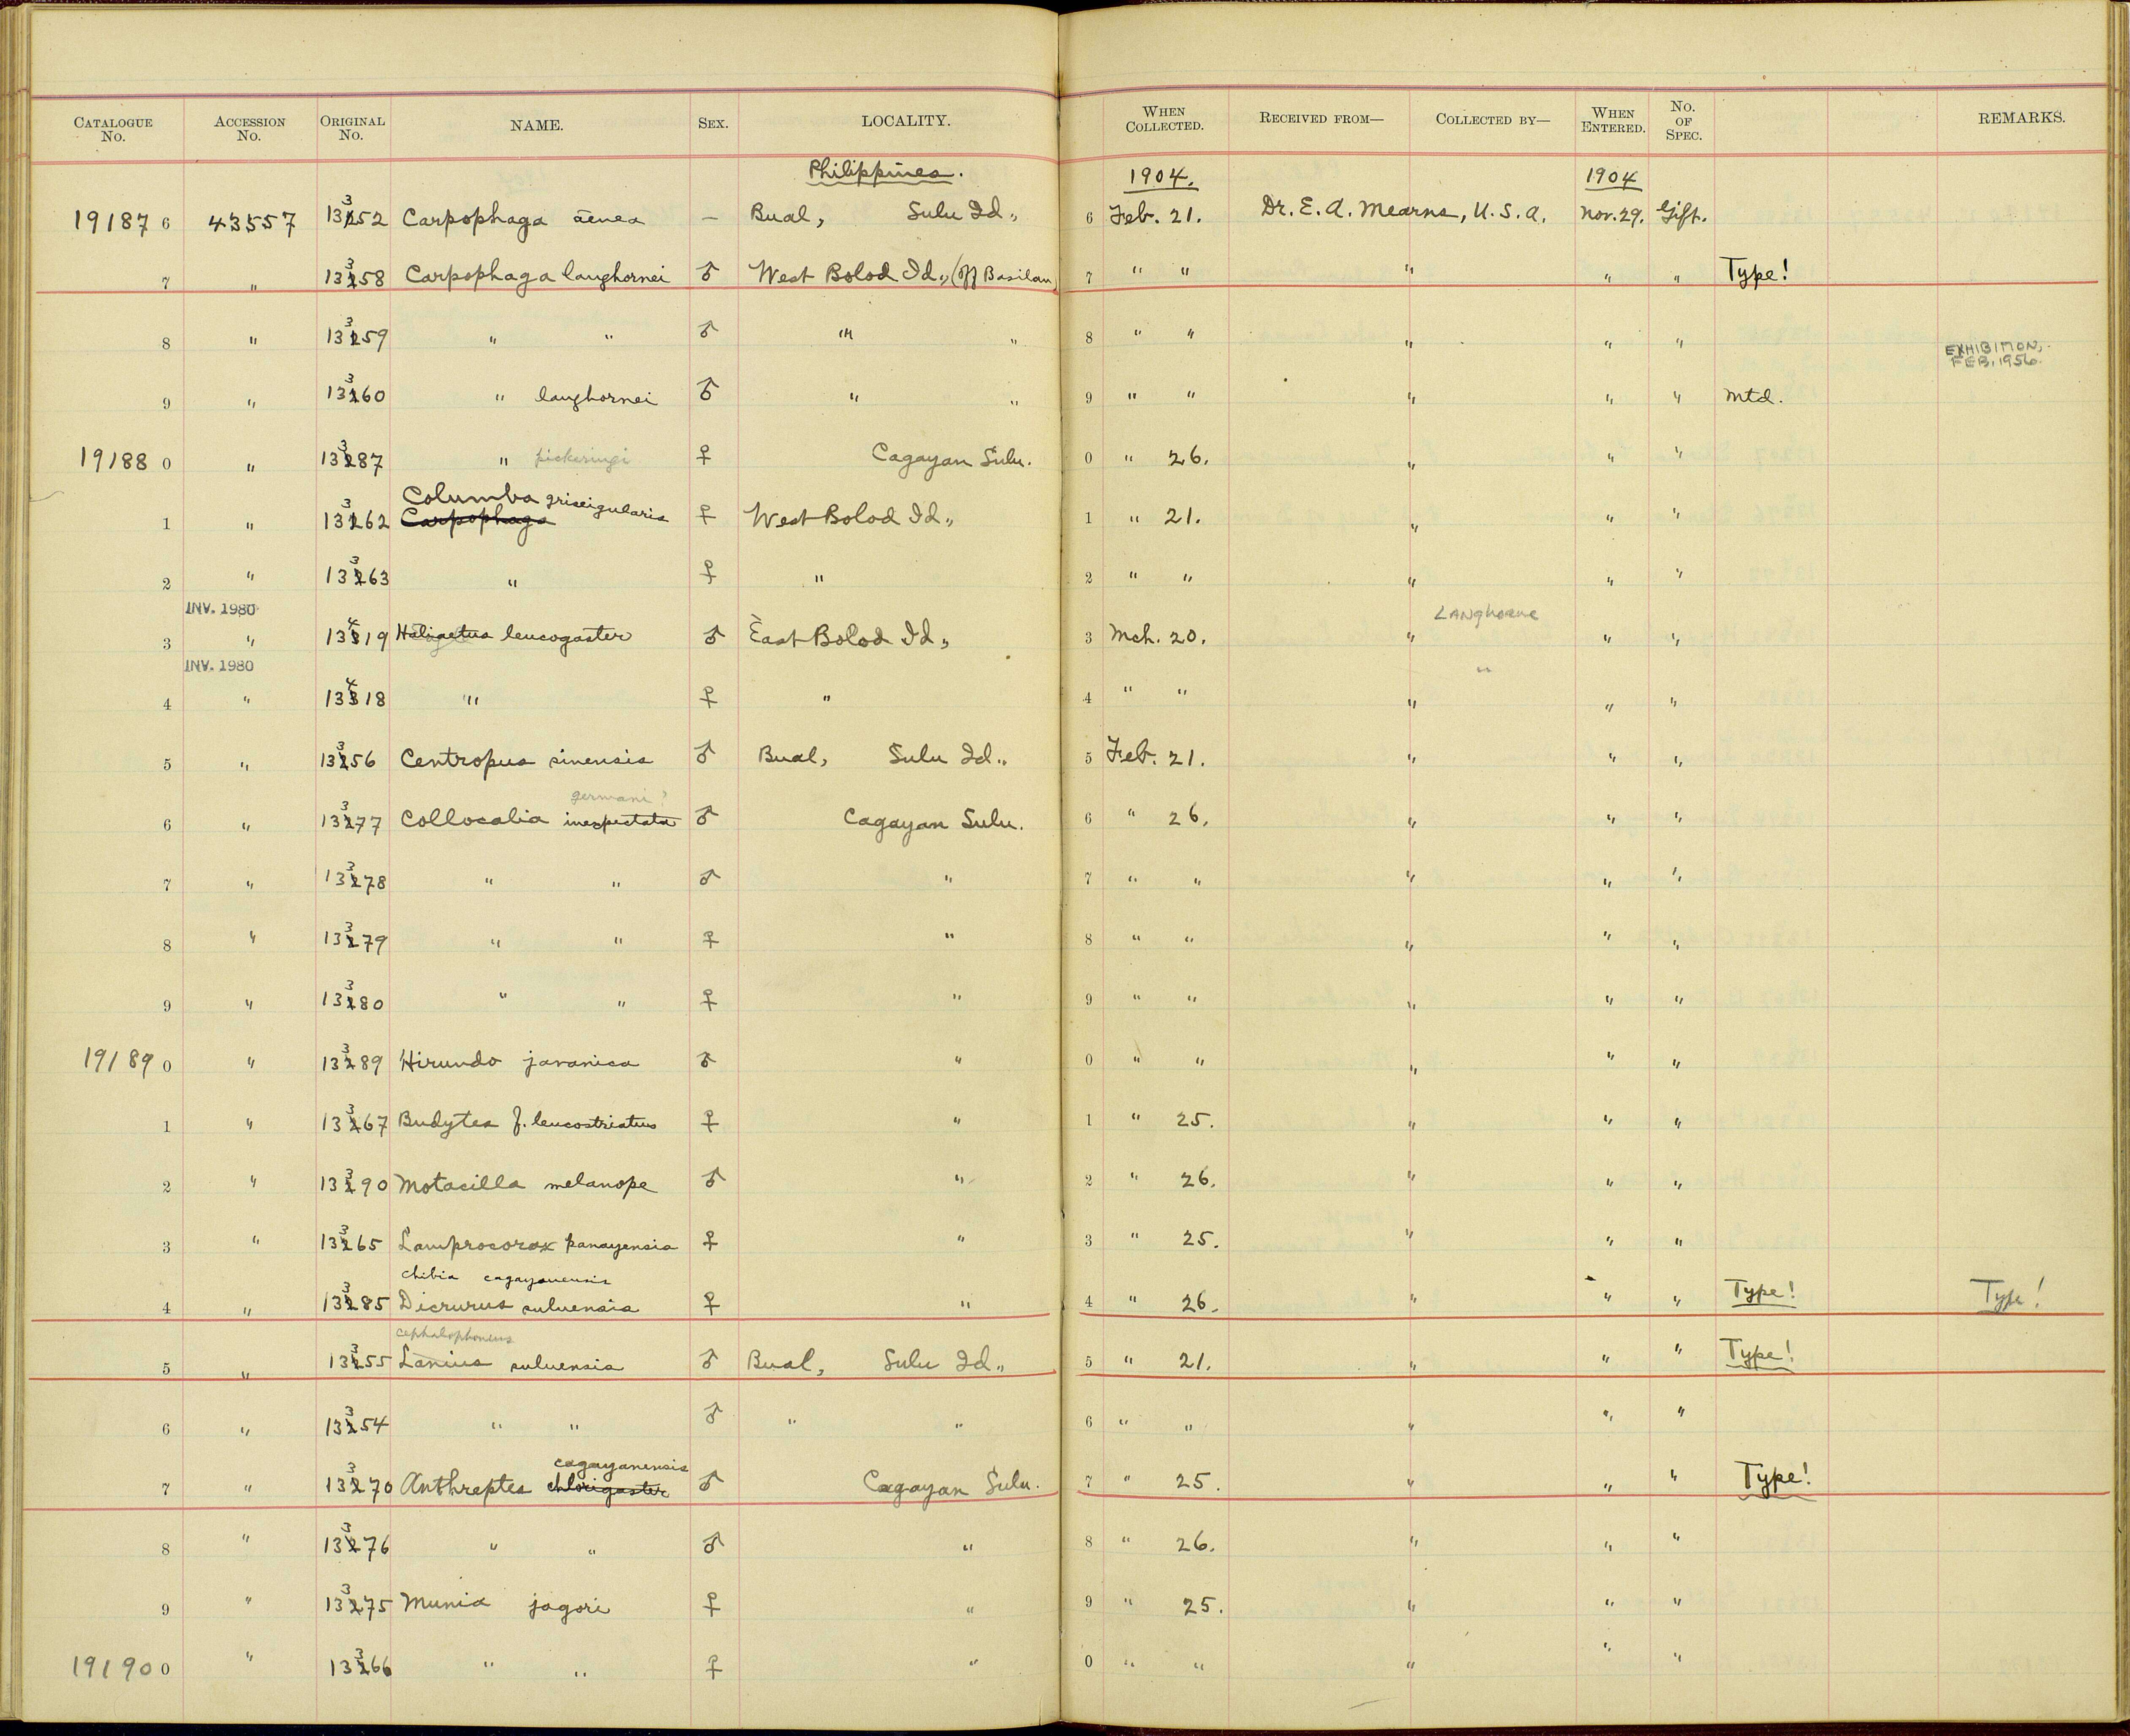 CATALOGUE No. ACCESSION No. ORIGINAL No. NAME. SEX. LOCALITY. WHEN COLLECTED. RECEIVED FROM— COLLECTED BY— WHEN ENTERED. No. OF SPEC. REMARKS.
Philippines. 1904. 1904
19187 6 43557 13352 Carpophaga aenea – Bual, Sulu Id., 6 Feb. 21. Dr. E. A. Mearns, U.S.A. Nov. 29. Gift.
7 " 13358 Carpophaga langhornei ♂ West Bolod Id., (off Basilan) 7 " " " " " Type!
8 " 13359 " " ♂ " " 8 " " " " "
EXHIBITION, FEB. 1956.
9 " 13360 " langhornei ♂ " " 9 " " " " " Mtd.
19188 0 " 13387 " pickeringi ♀ Cagayan Sulu. 0 " 26. " " "
Columba griseigularis
1 " 13362 Carpophaga ♀ West Bolod Id., 1 " 21. " " "
2 " 13363 " ♀ " 2 " " " " "
INV. 1980 Langhorne
3 " 13419 Haliaetus leucogaster ♂ East Bolod Id., 3 Mch. 20. " " "
INV. 1980 "
4 " 13418 " ♀ " 4 " " " " "
5 " 13356 Centropus sinensis ♂ Bual, Sulu Id., 5 Feb. 21. " " "
germani?
6 " 13377 Collocalia inexpectata ♂ Cagayan Sulu. 6 " 26. " " "
7 " 13378 " " ♂ " 7 " " " " "
8 " 13379 " " ♀ " 8 " " " " "
9 " 13380 " " ♀ " 9 " " " " "
19189 0 " 13389 Hirundo javanica ♂ " 0 " " " " "
1 " 13367 Budytes f. leucostriatus ♀ " 1 " 25. " " "
2 " 13390 Motacilla melanope ♂ " 2 " 26. " " "
3 " 13365 Lamprocorax panayensis ♀ " 3 " 25. " " "
Chibia cagayanensis
4 " 13385 Dicrurus suluensis ♀ " 4 " 26. " " " Type! Type!
cephalophoneus
5 " 13355 Lanius suluensis ♂ Bual, Sulu Id., 5 " 21. " " " Type!
6 " 13354 " " ♂ " " 6 " " " " "
cagayanensis
7 " 13370 Anthreptes chlorigaster ♂ Cagayan Sulu. 7 " 25. " " " Type!
8 " 13376 " " ♂ " 8 " 26. " " "
9 " 13375 Munia jagori ♀ " 9 " 25. " " "
19190 0 " 13366 " " ♀ " 0 " " " " "